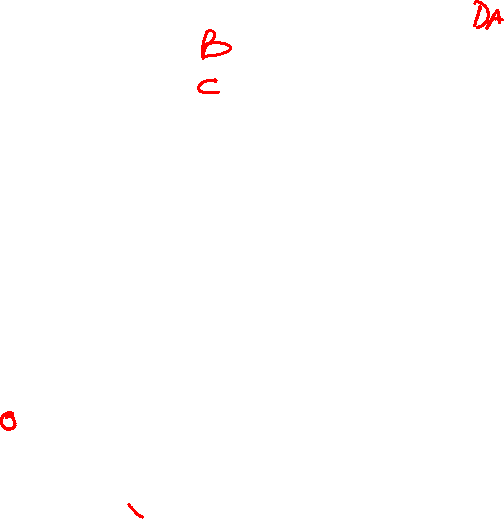 DA
B
C
O